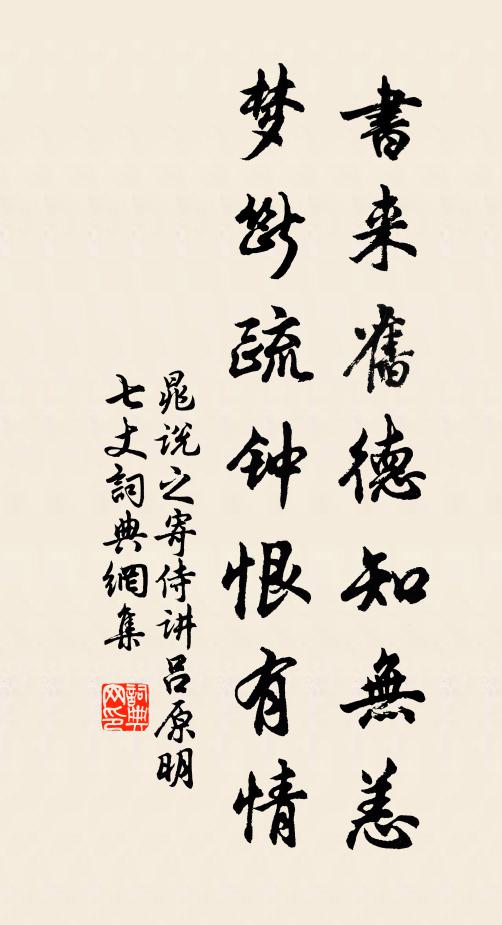 書来舊德知無恙
梦断疏钟恨有情
晁说之寄侍讲吕原明
七丈詞典網集
詞典网印